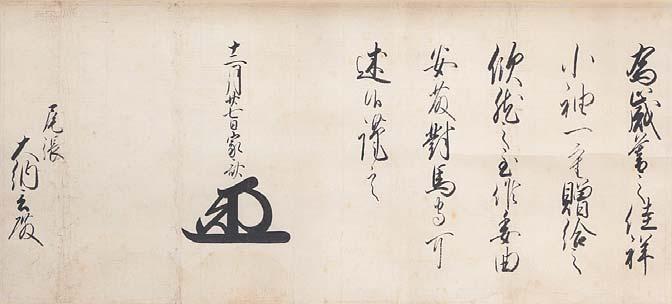 為歳暮之佳祥
小袖一重贈給之
欣然之至候委曲
安藤對馬守可
述候謹言
十二月廿七日家斉
尾張
大納言殿